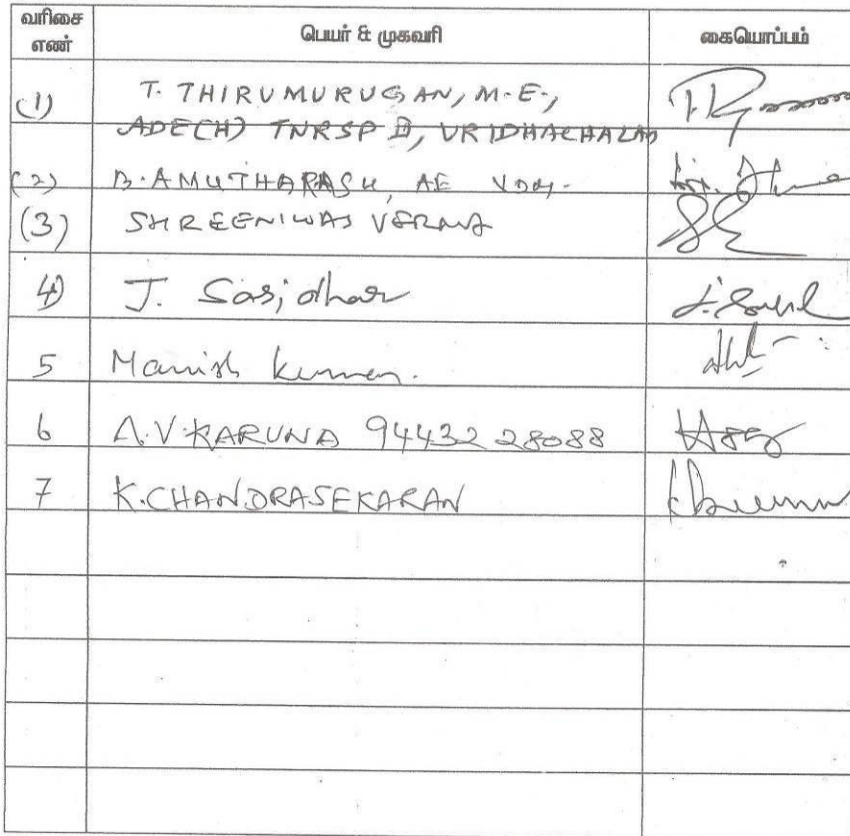 வரிசை எண் பெயர் & முகவரி கையொப்பம்
(1) T. THIRUMURUGAN, M.E.,
ADE(H) TNRSP II, VRIDHACHALAM
(2) B. AMUTHARASU, AE VDM.
(3) SHREENIWAS VERMA
4) J. Sasidhar
5 Manish kumar.
6 A.V. KARUNA 94432 28088
7 K. CHANDRASEKARAN